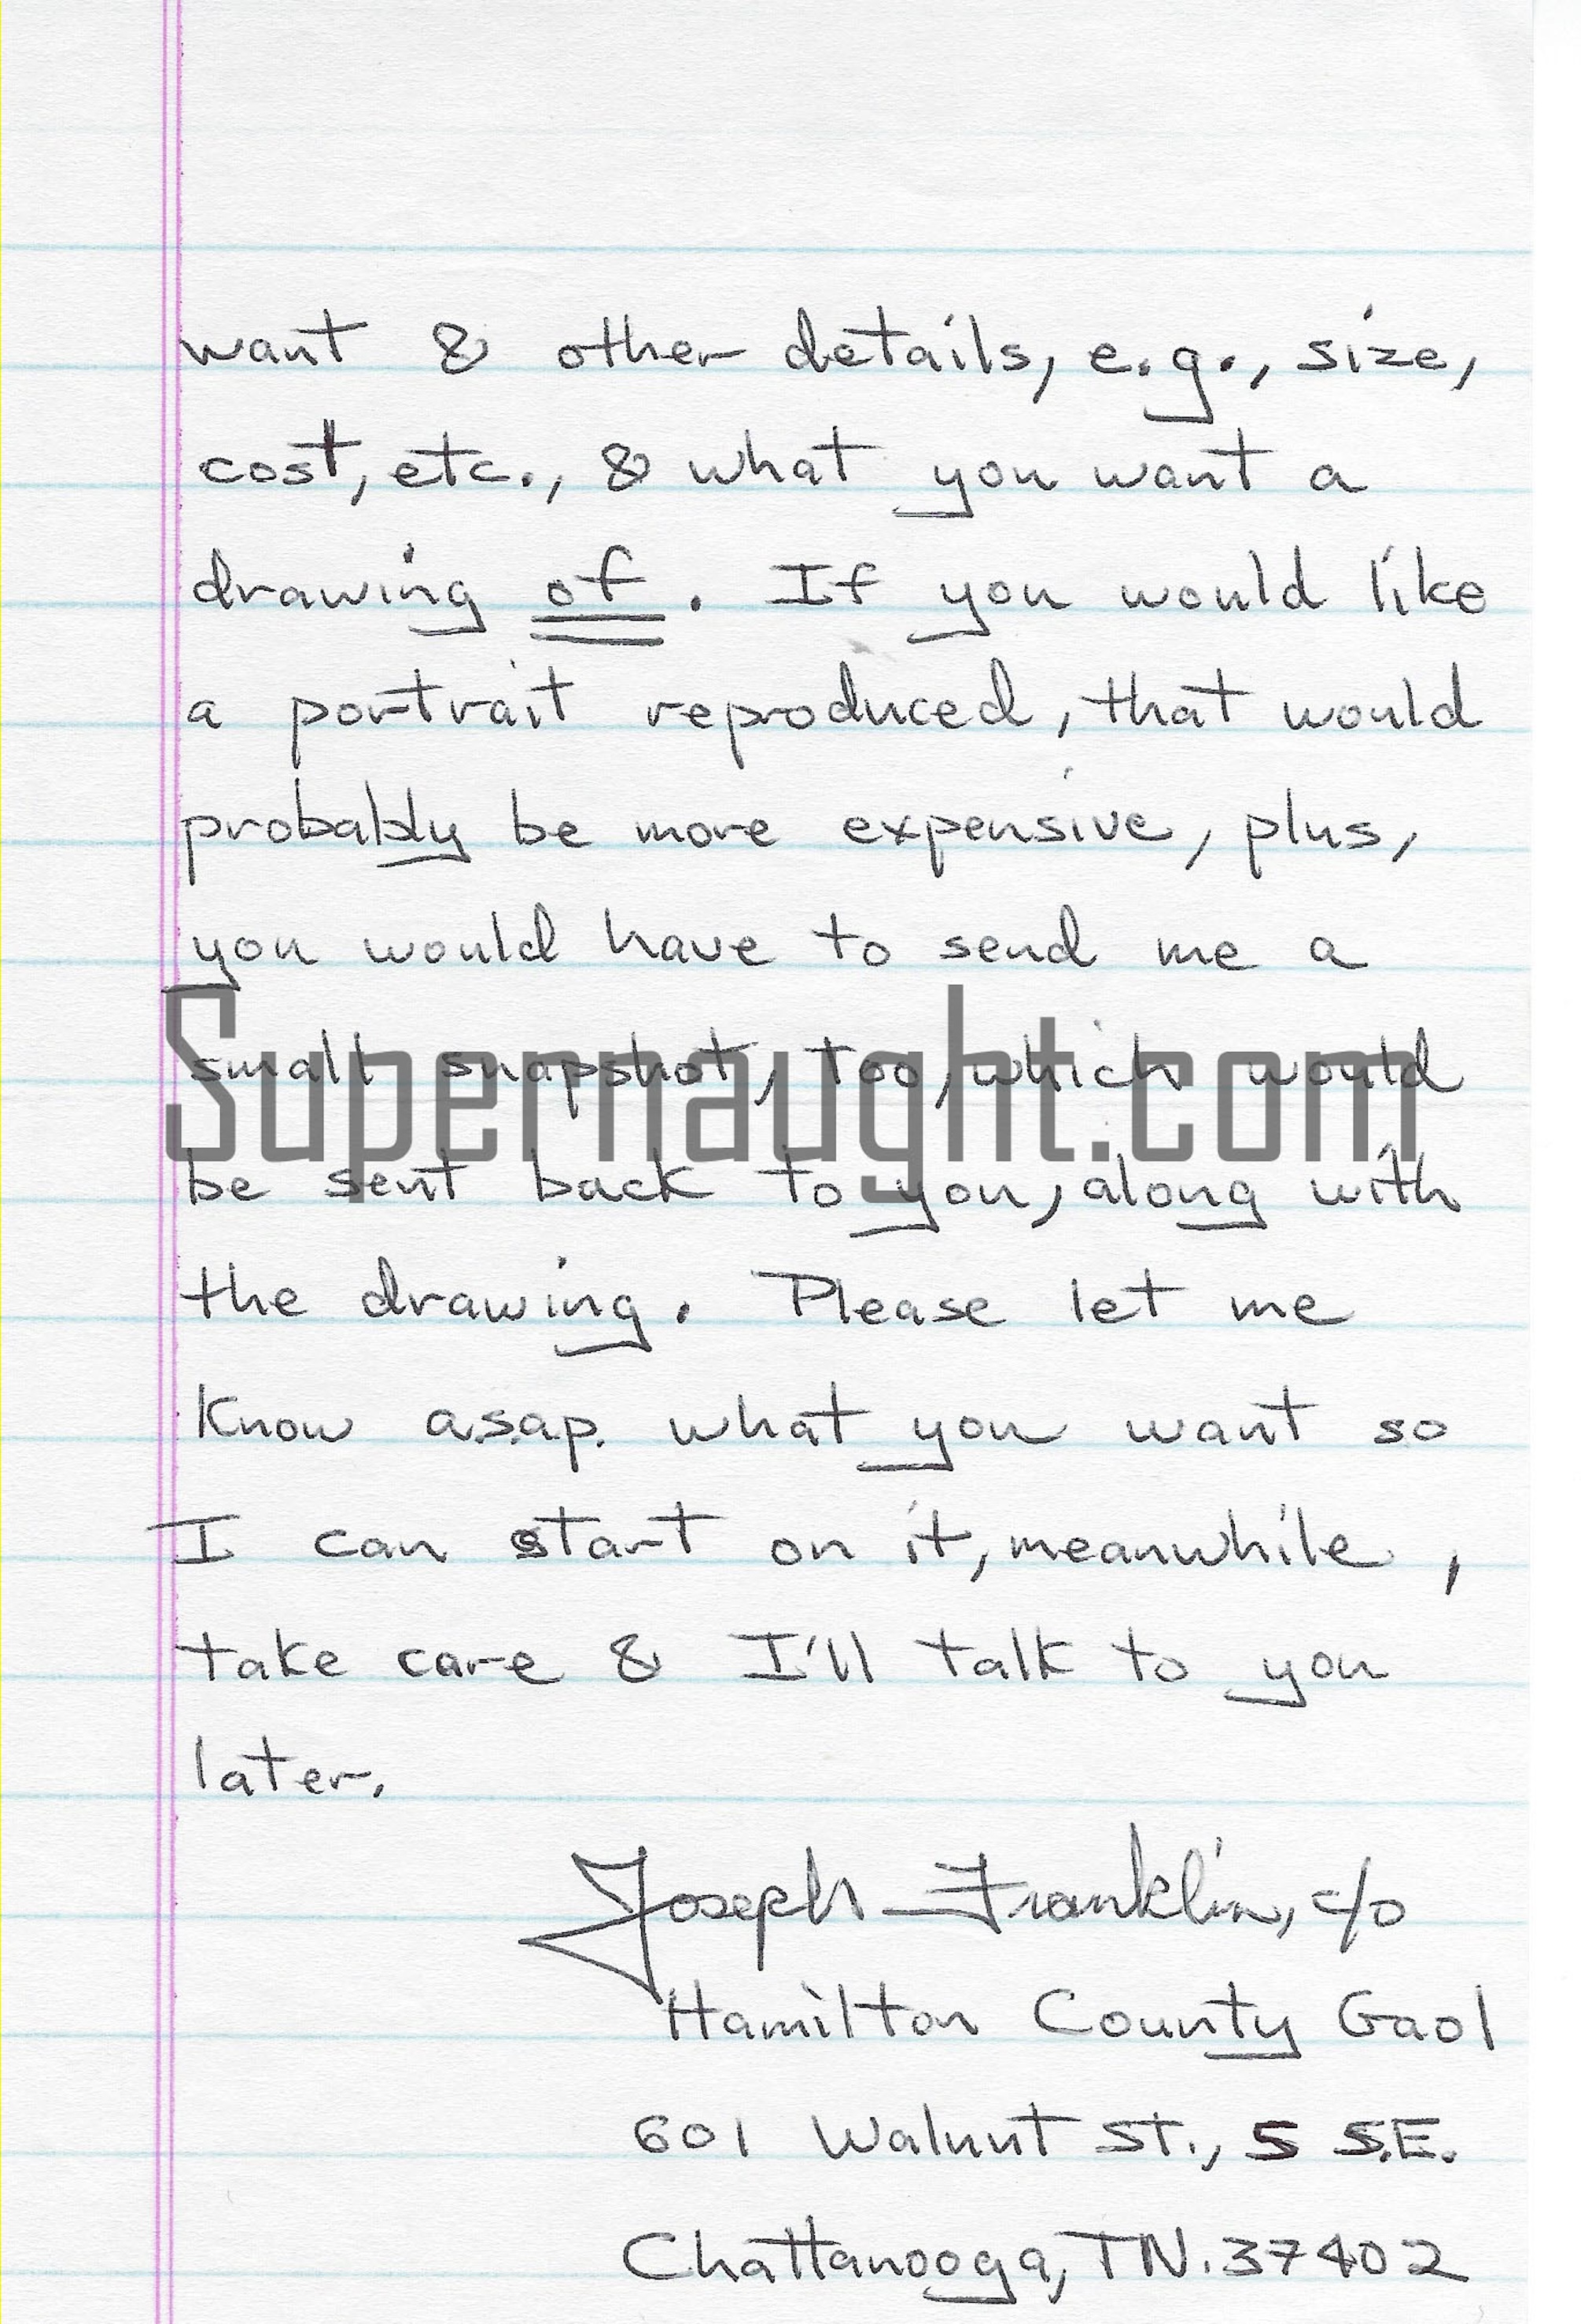 want & other details, e.g., size,
cost, etc., & what you want a
drawing of. If you would like
a portrait reproduced, that would
probably be more expensive, plus,
you would have to send me a
small snapshot, too, which would
Supernaught.com
be sent back to you, along with
the drawing. Please let me
know a.s.a.p. what you want so
I can start on it, meanwhile,
take care & I'll talk to you
later.
Joseph Franklin, c/o
Hamilton County Gaol
601 Walnut St., 5 S.E.
Chattanooga, TN. 37402